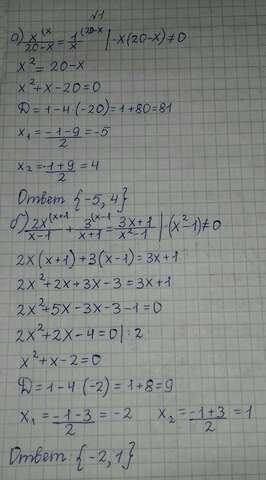 №1
а) x^(x/20-x = 1^(20-x/x | ·x(20-x)≠0
x²=20-x
x²+x-20=0
D=1-4·(-20)=1+80=81
x₁=-1-9/2=-5
x₂=-1+9/2=4
Ответ {-5,4}
б) 2x^(x+1/x-1 + 3^(x-1/x+1 = 3x+1/x²-1 | ·(x²-1)≠0
2x(x+1)+3(x-1)=3x+1
2x²+2x+3x-3=3x+1
2x²+5x-3x-3-1=0
2x²+2x-4=0|:2
x²+x-2=0
D=1-4(-2)=1+8=9
x₁=-1-3/2=-2 x₂=-1+3/2=1
Ответ {-2,1}